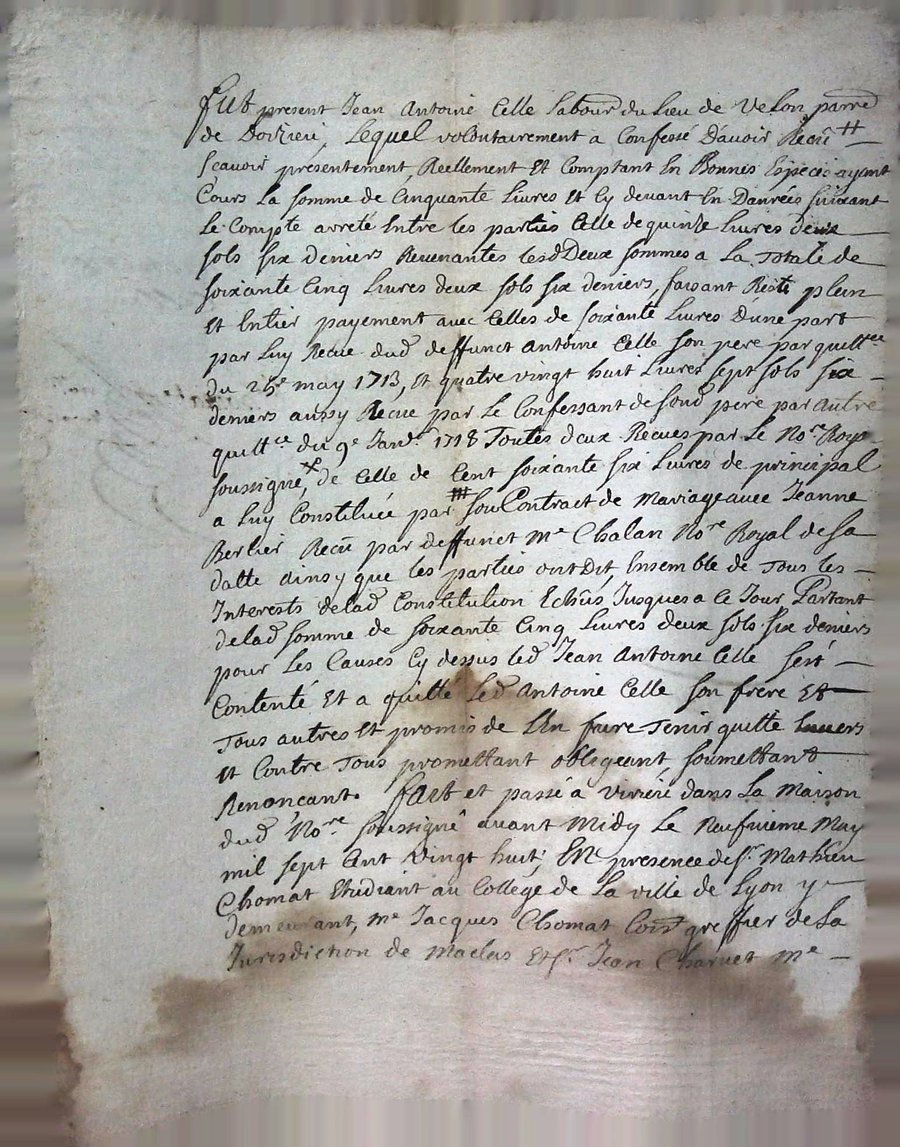 Fut present Jean Antoine Celle Labour du Lieu de Velon parre
de Doizieu, Lequel volontairement a Confessé D'avoir Receu #
scavoir presentement, Reellement Et Comptant En Bonnes Especes ayant
Cours La somme de Cinquante Livres Et Cy devant En Danrées suivant
Le Compte arreté Entre les parties Celle de quinze Livres deux
sols six deniers Revenantes lesd Deux sommes a La Totale de
soixante Cinq Livres deux sols six deniers, faisant Reste plein
et Entier payement avec Celles de soixante Livres d'une part
par Luy Recue dud deffunct Antoine Celle son pere par quittce
du 25e may 1713, et quatre vingt huit Livres sept sols six
deniers aussy Recue par Le Confessant de sond pere par autre
quittce du 9e Janvr 1718 Toutes deux Recues par Le Nore Royal
soussigné, de Celle de Cent soixante six Livres de principal
a Luy Constituée par son Contract de Mariage avec Jeanne
Berlier Receu par deffunct Me Chalan Nore Royal de sa
datte ainsy que les parties ont Dit Ensemble de Tous les
Interests de lad Constitution Echûs Jusques a ce Jour Partant
de lad somme de soixante Cinq Livres deux sols six deniers
pour Les Causes Cy dessus led Jean Antoine Celle s'est
Contenté Et a quitté Led Antoine Celle son frere Et
Tous autres Et promis de L'En faire Tenir quitte Envers
Et Contre Tous promettant obligeant soumettant
Renoncant. Fait et passé à virieu dans La Maison
dud Nore soussigné avant Midy Le Neufvieme May
mil sept Cent Vingt huit, En presence de sr Mathieu
Chomat Etudiant au College de La ville de Lyon y
demeurant, Me Jacques Chomat Coms greffier de La
Jurisdiction de Maclas Et sr Jean Charvet Me